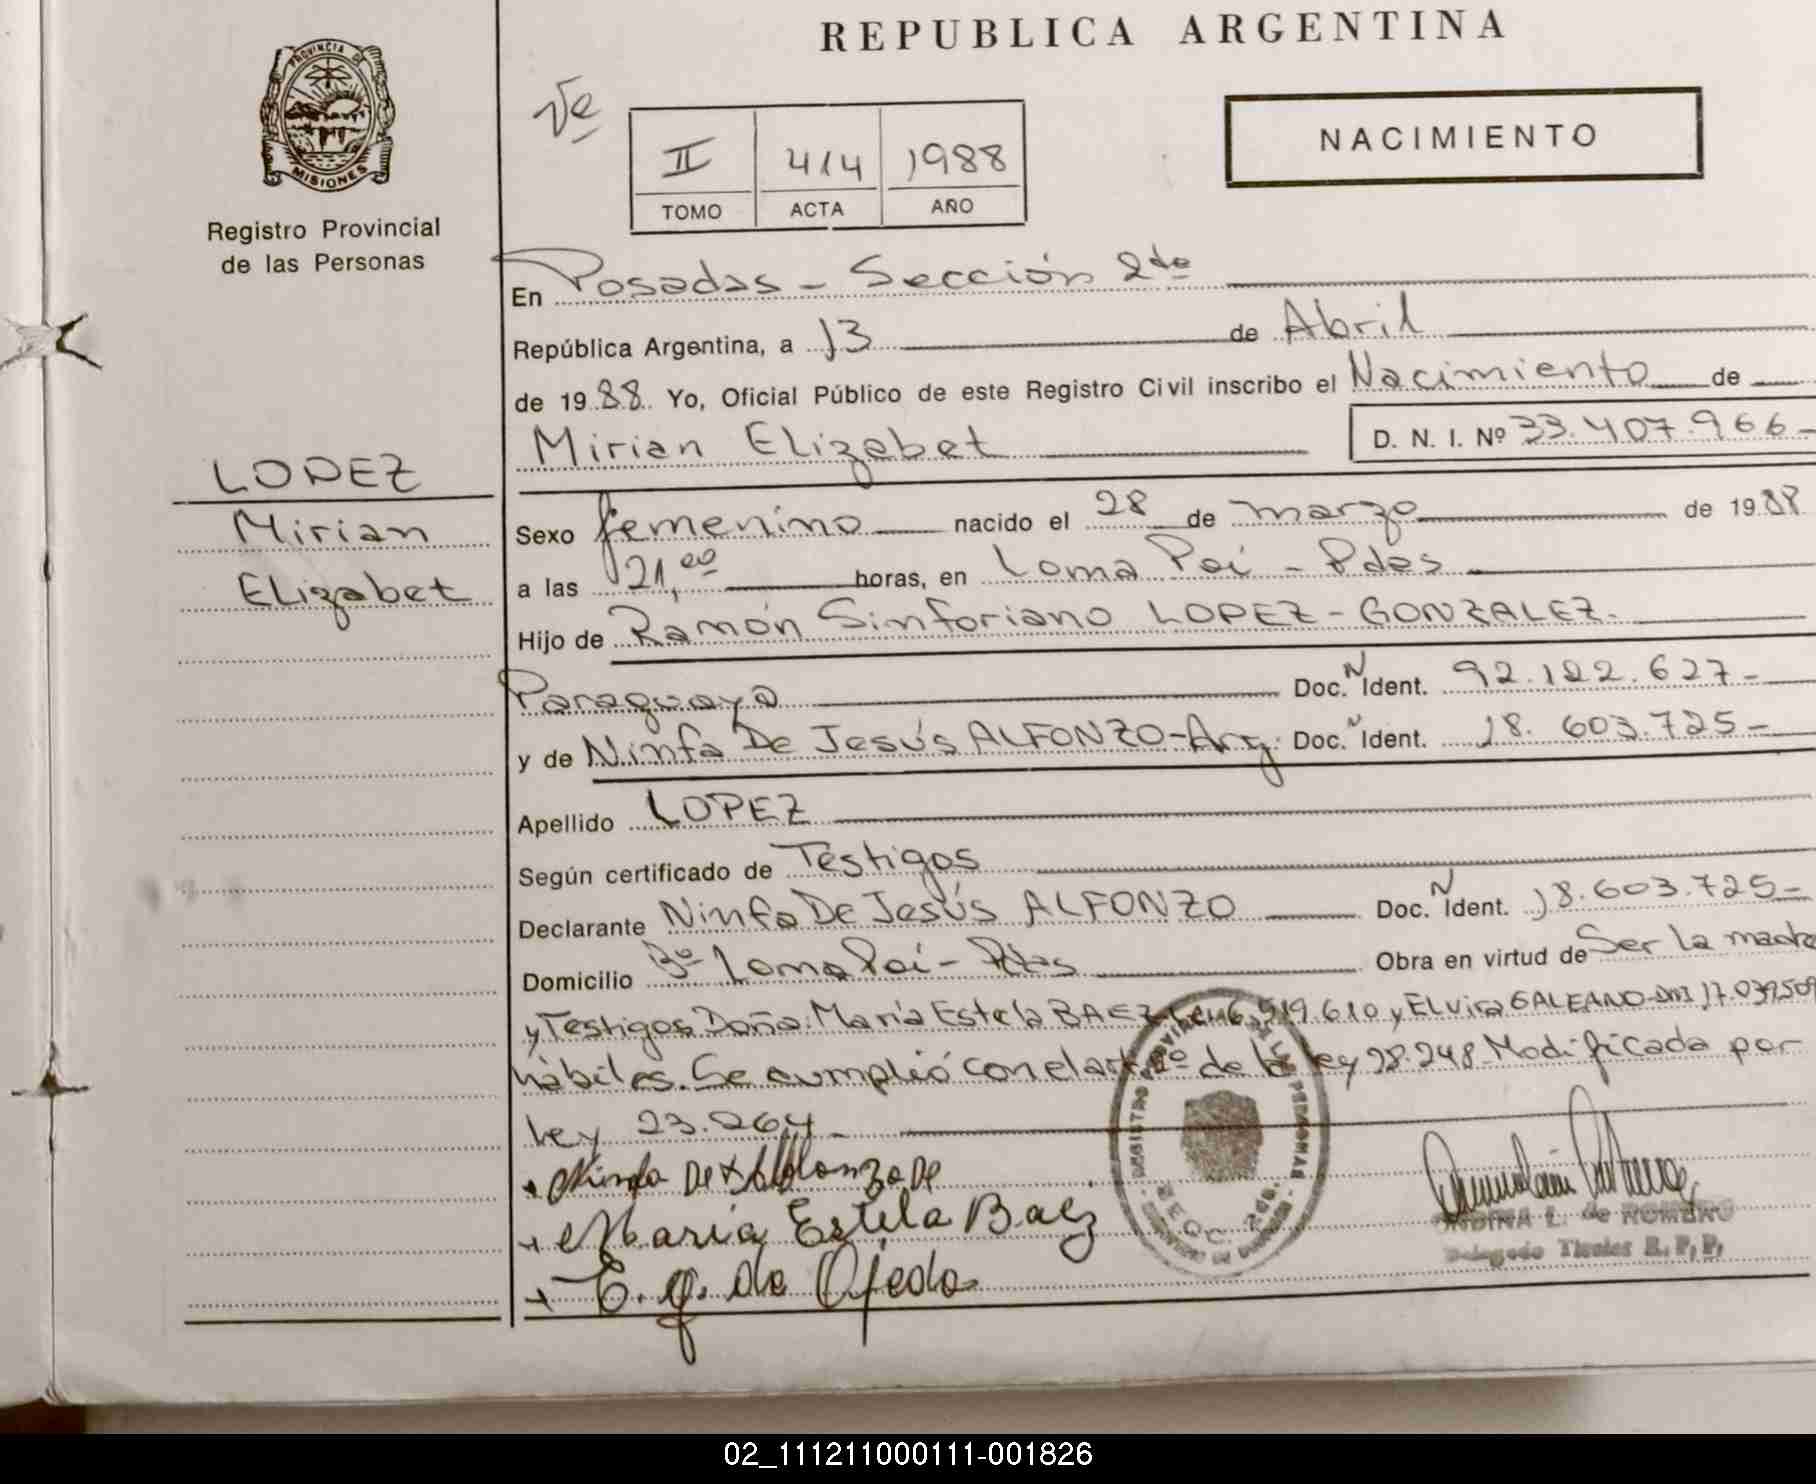 REPUBLICA ARGENTINA
PROVINCIA DE
MISIONES
Registro Provincial
de las Personas
NACIMIENTO
II 414 1988
TOMO ACTA AÑO
En Posadas - Sección 2da
República Argentina, a 13 de Abril
de 1988. Yo, Oficial Público de este Registro Civil inscribo el Nacimiento de
Mirian Elizabet D. N. I. Nº 33.407.966-
LOPEZ
Mirian
Elizabet
Sexo femenino nacido el 28 de marzo de 1988
a las 21,00 horas, en Loma Poi - Pdas
Hijo de Ramón Sinforiano LOPEZ-GONZALEZ-
Paraguayo Doc. N Ident. 92.122.627-
y de Ninfa De Jesús ALFONZO-Arg. Doc. N Ident. 18.603.725-
Apellido LOPEZ
Según certificado de Testigos
Declarante Ninfa De Jesús ALFONZO Doc. N Ident. 18.603.725-
Domicilio Bº Loma Poi - Pdas Obra en virtud de Ser la madre
y Testigos Doña María Estela BAEZ 6.519.610 y Elvira GALEANO-DNI 17.039509
hábiles. Se cumplió con el art. de la ley 18.248-Modificada por
Ley 23.264-
María Estela Baez
E. g. de Ojeda
L. de ROMERO
Delegado Titular R. P. P.
02_111211000111-001826